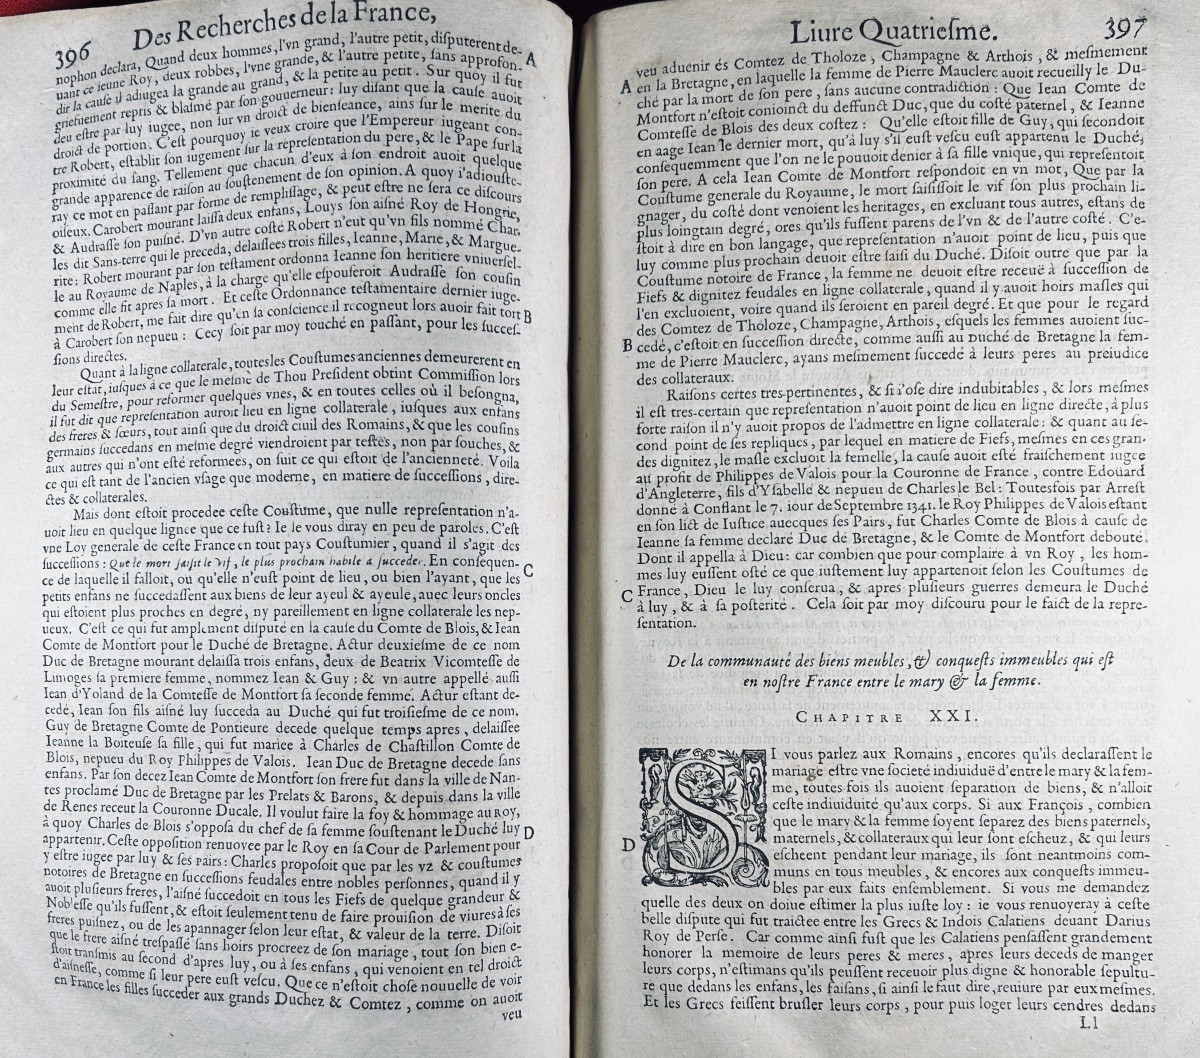 396 Des Recherches de la France,
nophon declara, Quand deux hommes, l'vn grand, l'autre petit, disputerent de-
uant ce ieune Roy, deux robbes, l'vne grande, & l'autre petite, sans approfon- A
dir la cause il adiugea la grande au grand, & la petite au petit. Sur quoy il fut
griefuement repris & blasmé par son gouuerneur: luy disant que la cause auoit
deu estre par luy iugee, non sur vn droict de bienseance, ains sur le merite du
droict de portion. C'est pourquoy ie veux croire que l'Empereur iugeant con-
tre Robert, establit son iugement sur la representation du pere, & le Pape sur la
proximité du sang. Tellement que chacun d'eux à son endroit auoit quelque
grande apparence de raison au soustenement de son opinion. A quoy i'adiouste-
ray ce mot en passant par forme de remplissage, & peut estre ne sera ce discours
oiseux. Carobert mourant laissa deux enfans, Louys son aisné Roy de Hongrie,
& Audrasse son puisné. D'vn autre costé Robert n'eut qu'vn fils nommé Char-
les dit Sans-terre qui le preceda, delaissees trois filles, Ieanne, Marie, & Margue-
rite: Robert mourant par son testament ordonna Ieanne son heritiere vniuersel-
le au Royaume de Naples, à la charge qu'elle espouseroit Audrasse son cousin
comme elle fit apres sa mort. Et ceste Ordonnance testamentaire dernier iuge-
ment de Robert, me fait dire qu'en sa conscience il recogneut lors auoir fait tort B
à Carobert son nepueu: Cecy soit par moy touché en passant, pour les succes-
sions directes.
Quant à la ligne collaterale, toutes les Coustumes anciennes demeurerent en
leur estat, iusques à ce que le mesme de Thou President obtint Commission lors
du Semestre, pour reformer quelques vnes, & en toutes celles où il besongna,
il fut dit que representation auroit lieu en ligne collaterale, iusques aux enfans
des freres & sœurs, tout ainsi que du droict ciuil des Romains, & que les cousins
germains succedans en mesme degré viendroient par testes, non par souches, &
aux autres qui n'ont esté reformees, on suit ce qui estoit de l'ancienneté. Voila
ce qui est tant de l'ancien vsage que moderne, en matiere de successions, dire-
ctes & collaterales.
Mais dont estoit procedee ceste Coustume, que nulle representation n'a-
uoit lieu en quelque ligne que ce fust: Ie le vous diray en peu de paroles. C'est
vne Loy generale de ceste France en tout pays Coustumier, quand il s'agit des
successions: Que le mort saisit le vif, le plus prochain habile à succeder. En consequen-
ce de laquelle il falloit, ou qu'elle n'eust point de lieu, ou bien l'ayant, que les C
petits enfans ne succedassent aux biens de leur ayeul & ayeule, auec leurs oncles
qui estoient plus proches en degré, ny pareillement en ligne collaterale les nep-
ueux. C'est ce qui fut amplement disputé en la cause du Comte de Blois, & Iean
Comte de Montfort pour le Duché de Bretagne. Actur deuxiesme de ce nom
Duc de Bretagne mourant delaissa trois enfans, deux de Beatrix Vicomtesse de
Limoges sa premiere femme, nommez Iean & Guy: & vn autre appellé aussi
Iean d'Yoland de la Comtesse de Montfort sa seconde femme. Actur estant de-
cedé, Iean son fils aisné luy succeda au Duché qui fut troisiesme de ce nom.
Guy de Bretagne Comte de Pontieure decede quelque temps apres, delaissee
Ieanne la Boiteuse sa fille, qui fut mariee à Charles de Chastillon Comte de
Blois, nepueu du Roy Philippes de Valois. Iean Duc de Bretagne decede sans
enfans. Par son decez Iean Comte de Montfort son frere fut dans la ville de Nan-
tes proclamé Duc de Bretagne par les Prelats & Barons, & depuis dans la ville
de Renes receut la Couronne Ducale. Il voulut faire la foy & hommage au Roy,
à quoy Charles de Blois s'opposa du chef de sa femme soustenant le Duché luy D
appartenir. Ceste opposition renuoyee par le Roy en sa Cour de Parlement pour
y estre iugee par luy & ses Pairs: Charles proposoit que par les vz & coustumes
notoires de Bretagne en successions feudales entre nobles personnes, quand il y
auoit plusieurs freres, l'aisné succedoit en tous les Fiefs de quelque grandeur &
Noblesse qu'ils fussent, & estoit seulement tenu de faire prouision de viures à ses
freres puisnez, ou de les apannager selon leur estat, & valeur de la terre. Disoit
que le frere aisné trespassé sans hoirs procreez de son mariage, tout son bien e-
stoit transmis au second d'apres luy, ou à ses enfans, qui venoient en tel droict
d'aisnesse, comme si leur pere eust vescu. Que ce n'estoit chose nouuelle de voir
en France les filles succeder aux grands Duchez & Comtez, comme on auoit
veu
Liure Quatriesme. 397
veu aduenir és Comtez de Tholoze, Champagne & Arthois, & mesmement
A en la Bretagne, en laquelle la femme de Pierre Mauclerc auoit recueilly le Du-
ché par la mort de son pere, sans aucune contradiction: Que Iean Comte de
Montfort n'estoit conioinct du deffunct Duc, que du costé paternel, & Ieanne
Comtesse de Blois des deux costez: Qu'elle estoit fille de Guy, qui secondoit
en aage Iean le dernier mort, qu'à luy s'il eust vescu eust appartenu le Duché,
consequemment que l'on ne le pouuoit denier à sa fille vnique, qui representoit
son pere. A cela Iean Comte de Montfort respondoit en vn mot, Que par la
Coustume generale du Royaume, le mort saisissoit le vif son plus prochain li-
gnager, du costé dont venoient les heritages, en excluant tous autres, estans de
plus loingtain degré, ores qu'ils fussent parens de l'vn & de l'autre costé. C'e-
stoit à dire en bon langage, que representation n'auoit point de lieu, puis que
luy comme plus prochain deuoit estre saisi du Duché. Disoit outre que par la
Coustume notoire de France, la femme ne deuoit estre receuë à succession de
Fiefs & dignitez feudales en ligne collaterale, quand il y auoit hoirs masles qui
l'en excluoient, voire quand ils seroient en pareil degré. Et que pour le regard
des Comtez de Tholoze, Champagne, Arthois, esquels les femmes auoient suc-
B cedé, c'estoit en succession directe, comme aussi au Duché de Bretagne la fem-
me de Pierre Mauclerc, ayans mesmement succedé à leurs peres au preiudice
des collateraux.
Raisons certes tres-pertinentes, & si i'ose dire indubitables, & lors mesmes
il est tres-certain que representation n'auoit point de lieu en ligne directe, à plus
forte raison il n'y auoit propos de l'admettre en ligne collaterale: & quant au se-
cond point de ses repliques, par lequel en matiere de Fiefs, mesmes en ces gran-
des dignitez, le masle excluoit la femelle, la cause auoit esté fraischement iugee
au profit de Philippes de Valois pour la Couronne de France, contre Edoüard
d'Angleterre, fils d'Ysabelle & nepueu de Charles le Bel: Toutesfois par Arrest
donné à Conflant le 7. iour de Septembre 1341. le Roy Philippes de Valois estant
en son lict de Iustice auecques ses Pairs, fut Charles Comte de Blois à cause de
Ieanne sa femme declaré Duc de Bretagne, & le Comte de Montfort debouté.
Dont il appella à Dieu: car combien que pour complaire à vn Roy, les hom-
mes luy eussent osté ce que iustement luy appartenoit selon les Coustumes de
C France, Dieu le luy conserua, & apres plusieurs guerres demeura le Duché
à luy, & à sa posterité. Cela soit par moy discouru pour le faict de la repre-
sentation.
De la communauté des biens meubles, & conquests immeubles qui est
en nostre France entre le mary & la femme.
CHAPITRE XXI.
SI vous parlez aux Romains, encores qu'ils declarassent le
mariage estre vne societé indiuiduë d'entre le mary & la fem-
me, toutes fois ils auoient separation de biens, & n'alloit
ceste indiuiduité qu'aux corps. Si aux François, combien
que le mary & la femme soyent separez des biens paternels,
D maternels, & collateraux qui leur sont escheuz, & qui leurs
escheent pendant leur mariage, ils sont neantmoins com-
muns en tous meubles, & encores aux conquests immeu-
bles par eux faits ensemblement. Si vous me demandez
quelle des deux on doiue estimer la plus iuste loy: ie vous renuoyeray à ceste
belle dispute qui fut traictee entre les Grecs & Indois Calatiens deuant Darius
Roy de Perse. Car comme ainsi fust que les Calatiens pensassent grandement
honorer la memoire de leurs peres & meres, apres leurs deceds de manger
leurs corps, n'estimans qu'ils peussent receuoir plus digne & honorable sepultu-
re que dedans les enfans, les faisans, si ainsi le faut dire, reuiure par eux mesmes.
Et les Grecs feissent brusler leurs corps, pour puis loger leurs cendres dedans
Ll